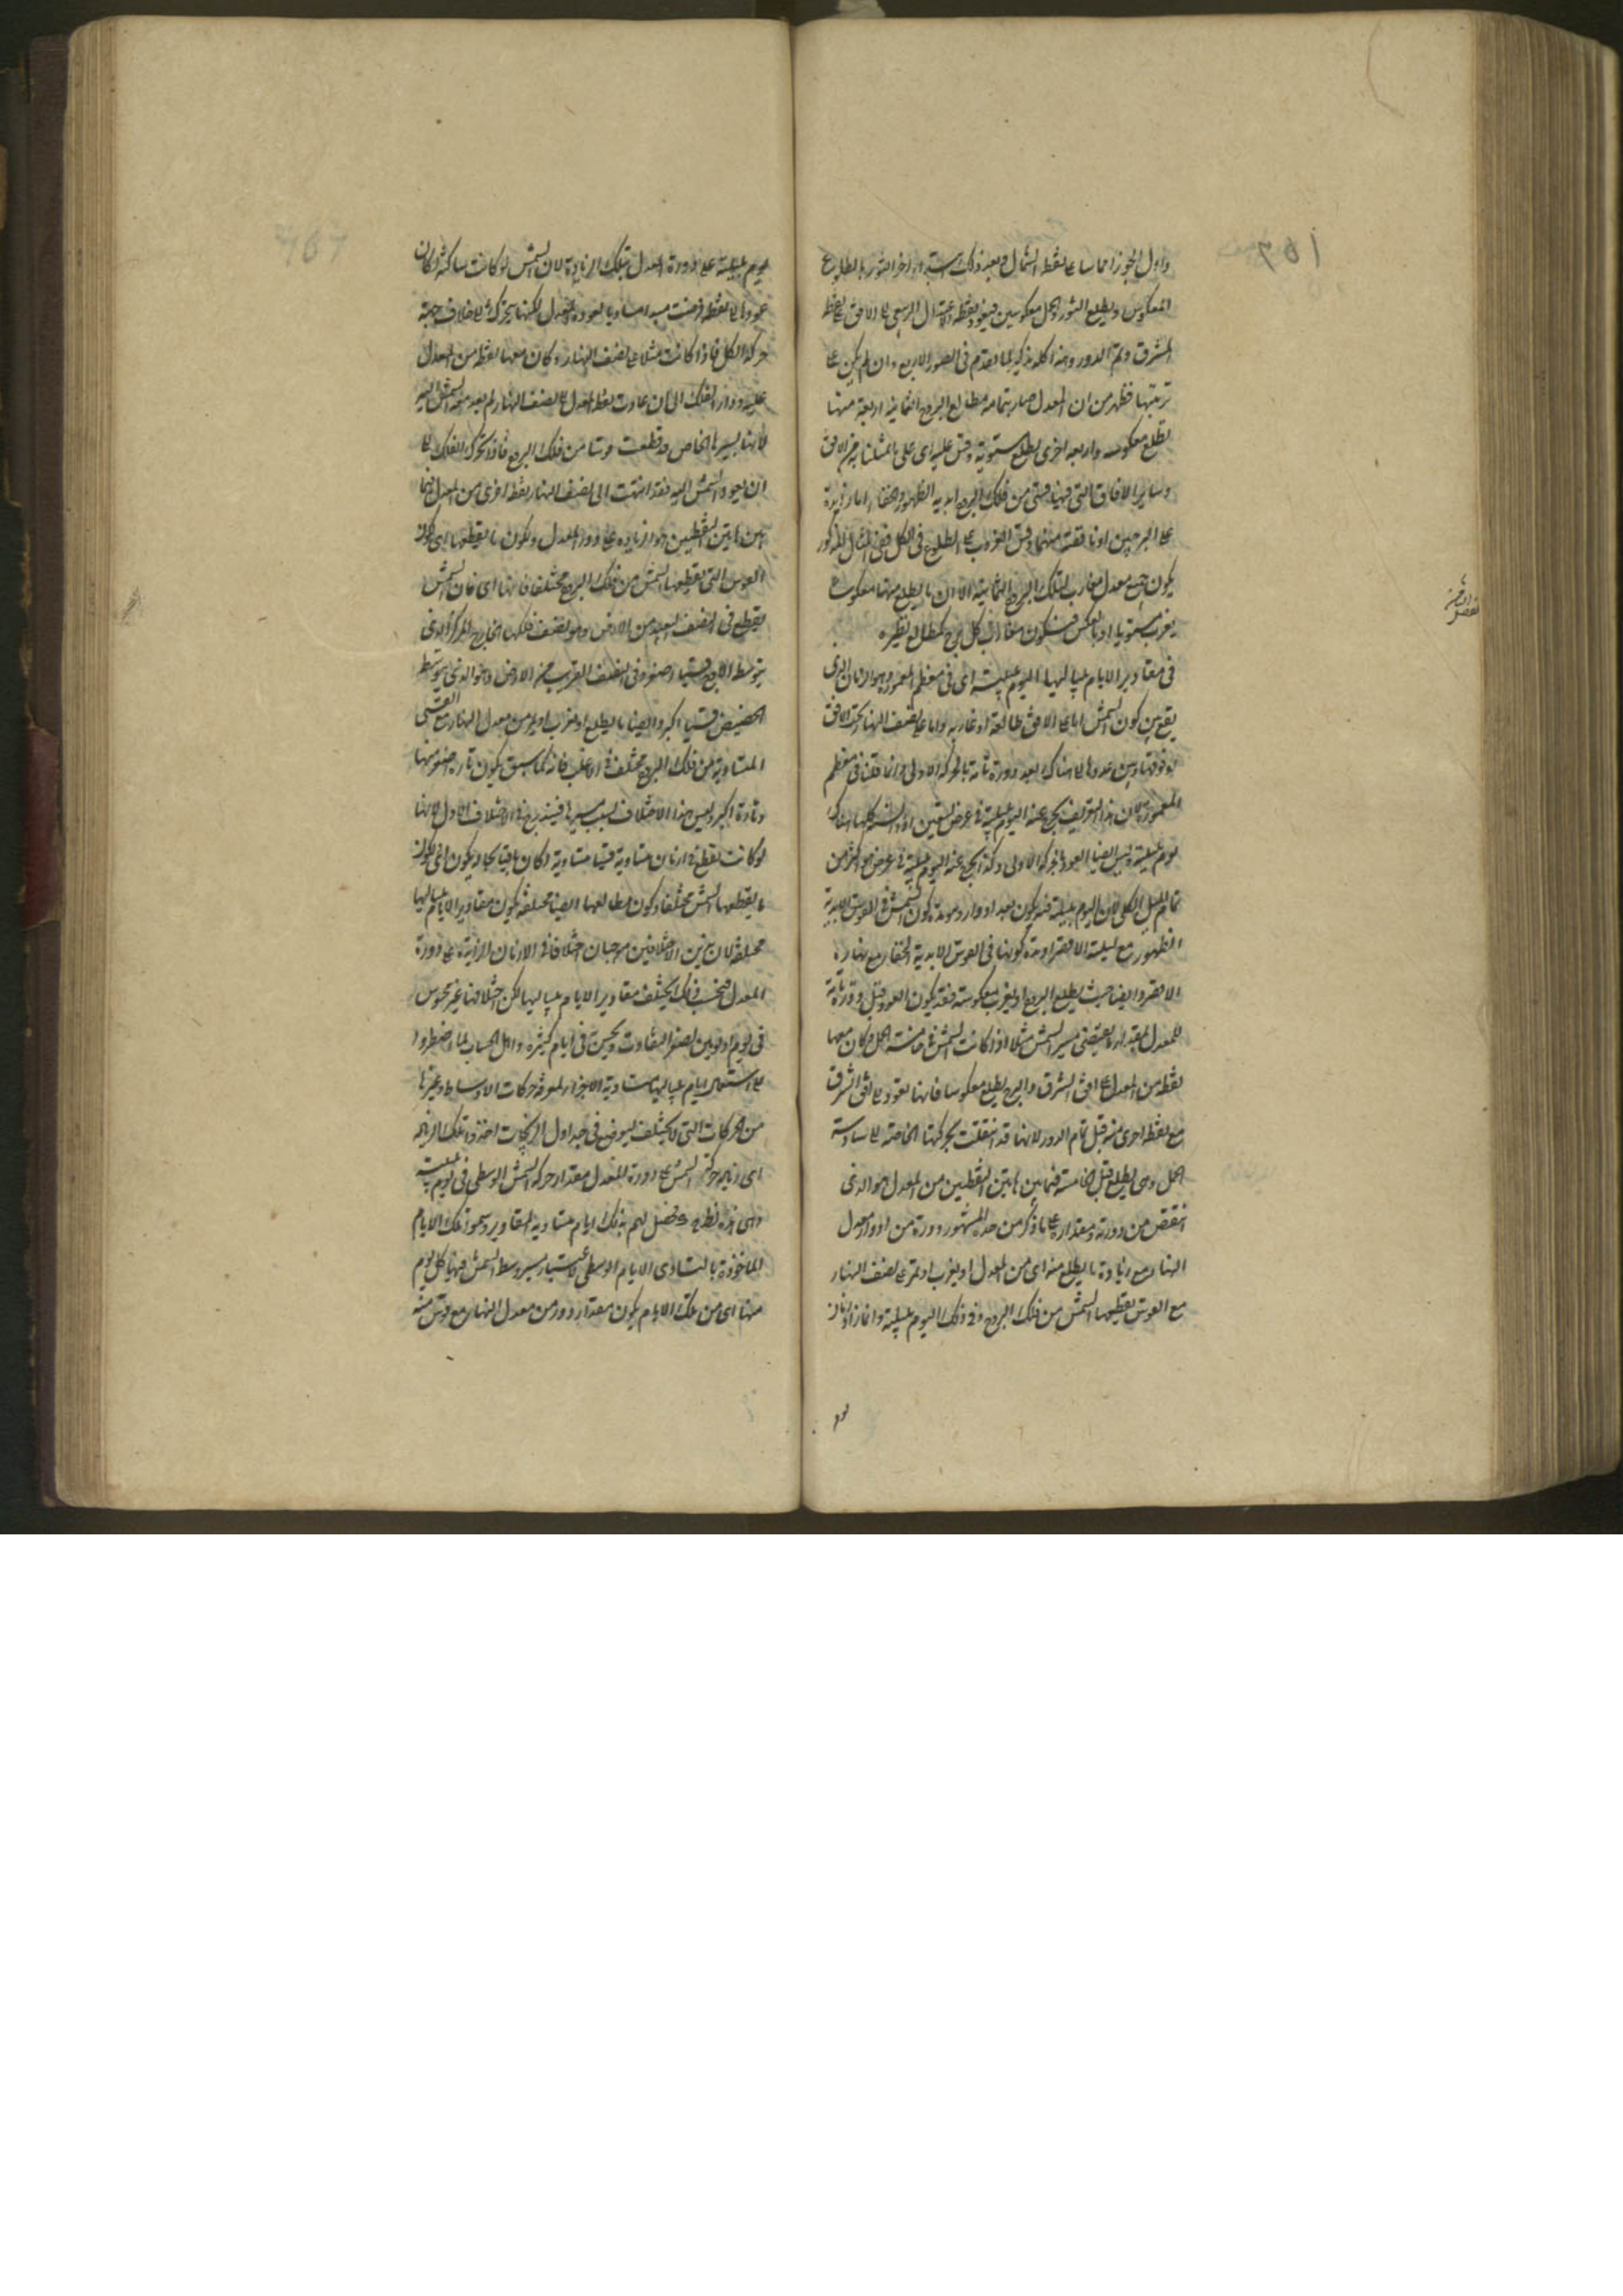 واول الجوزا مماسا على نقطه الشمال وبعد ذلك يبتدى اخر الثور بالطلوع
المعكوس ويطلع الثور والحمل معكوسين فيعود نقطه الاعتدال الربيعى الى الافق على نقطه
المشرق وتم الدور وهذا كله تذكير لما تقدم فى الصور الاربع وان لم يكن على
ترتيبها فظهر من ان المعدل صار بتمامه مطالع البروج الثمانية اربعة منها
تطلع معكوسه واربعه اخرى تطلع مستوية وقس عليه اى على ما مثلنا به من الافق
وساير الافاق التى فيها قسى من فلك البروج ابدية الظهور والخفاء اما زايدة
على البرجين او ناقصة منهما وقس الغروب على الطلوع فى الكل ففى المثال المذكور
يكون جميع معدل مغارب لتلك البروج الثمانية الا ان ما يطلع منها معكوسا
يغرب مستويا او بالعكس فيكون مغارب كل برج كمطالع نظيره
فى مقادير الايام بلياليها اليوم بليلته اى فى معظم المعمورة هو الزمان الذى
يقع بين كون الشمس اما على الافق طالعة او غاربه واما على نصف النهار تحت الافق
او فوقها وبين عودها الى هناك بعد دورة تامة بالحركة الاولى وانما قلنا فى معظم
المعمورة لان هذا التعريف يخرج عنه اليوم بليلته فى عرض تسعين اذ السنة كلها هناك
يوم بليلته وليس ايضا العود بالحركة الاولى وكذا يخرج عنه اليوم بليلته فى عرض هو اكثر من
تمام الميل الكلى لان اليوم بليلته فيه يكون بعد ادوار ومدة كون الشمس فى القوس الابدية
الظهور مع ليلته الاقصر او مدة كونها فى القوس الابدية الخفاء مع نهاره
الاقصر وايضا حيث يطلع البروج او يغرب معكوسة فقد يكون العود قبل دورة تامة
للمعدل بمقدار ما يقتضى مسير الشمس مثلا اذا كانت الشمس فى خامسة الحمل وكان معها
نقطه من المعدل على افق الشرق والبرج يطلع معكوسا فانها تعود الى افق الشرق
مع نقطه اخرى منه قبل تمام الدور لانها قد انتقلت بحركتها الخاصة الى سادسة
الحمل وهى يطلع قبل الخامسة فيما بين هاتين النقطتين من المعدل هو الذى
انتقص من دورته ومقداره على ما ذكر من حده المشهور دورة من ادوار معدل
النهار مع زيادة ما يطلع منه اى من المعدل او يغرب او يمر على نصف النهار
مع القوس يقطعها الشمس من فلك البروج فى ذلك اليوم بليلته وانما زاد زمان
يوم
يوم بليلته على دورة المعدل بتلك الزيادة لان الشمس لو كانت ساكنة لكان
عودها الى نقطه فرضت مبدا مساويا لعودة المعدل لكنها يتحرك الى خلاف جهة
حركة الكل فاذا كانت مثلا على نصف النهار وكان معها نقطه من المعدل
عليه ودار الفلك الى ان عادت نقطه المعدل الى نصف النهار لم يعد معه الشمس اليه
لانها بسيرها الخاص قد قطعت قوسا من فلك البروج فاذا تحرك الفلك الى
ان يعود الشمس اليه فقد انتهت الى نصف النهار نقطه اخرى من المعدل فما
بين هاتين النقطتين هو الزيادة على دور المعدل ولكون ما يقطعها اى لكون
القوس التى يقطعها الشمس من فلك البروج مختلفا فانها اى فان الشمس
يقطع فى النصف البعيد من الارض وهو نصف فلكها الخارج المركز الذى
يتوسط الاوج قسيا اصغر وفى النصف القريب من الارض وهو الذى يتوسط
الحضيض قسيا اكبر وايضا ما يطلع او يغرب او يمر من معدل النهار مع القسى
المتساوية من فلك البروج مختلف فى الاغلب فانه كما سبق يكون تارة اصغر منها
وتارة اكبر وليس هذا الاختلاف بسبب مسيرها فيندرج فى الاختلاف الاول لانها
لو كانت تقطع فى ازمان متساوية قسيا متساوية لكان باقيا بحاله ويكون اى لكون
ما يقطعها الشمس مختلفا وكون مطالعها ايضا مختلفة يكون مقادير الايام بلياليها
مختلفة لان هذين الاختلافين موجبان اختلافا فى الازمان الزايدة على دورة
المعدل فبحسب ذلك يختلف مقادير الايام بلياليها لكن اختلافها غير محسوس
فى يوم او يومين لصغر التفاوت ويحس فى ايام كثيرة واهل الحساب لما اضطروا
الى استعمال ايام بلياليها متساوية الاجزاء لمعرفة حركات الاوساط وغيرها
من الحركات التى لا يختلف ليوضع فى جداول الزيجات اخذوا تلك الزيادة
اى زيادة حركة الشمس على دورة المعدل مقدار حركة الشمس الوسطى فى يوم بليلته
وهى نه ح فحصل لهم بذلك ايام متساوية المقادير وسموا تلك الايام
الماخوذة بالتساوى الايام الوسطى لاعتبار مسير وسط الشمس فيها كل يوم
منها اى من تلك الايام يكون مقدار دور من معدل النهار مع قوس منه